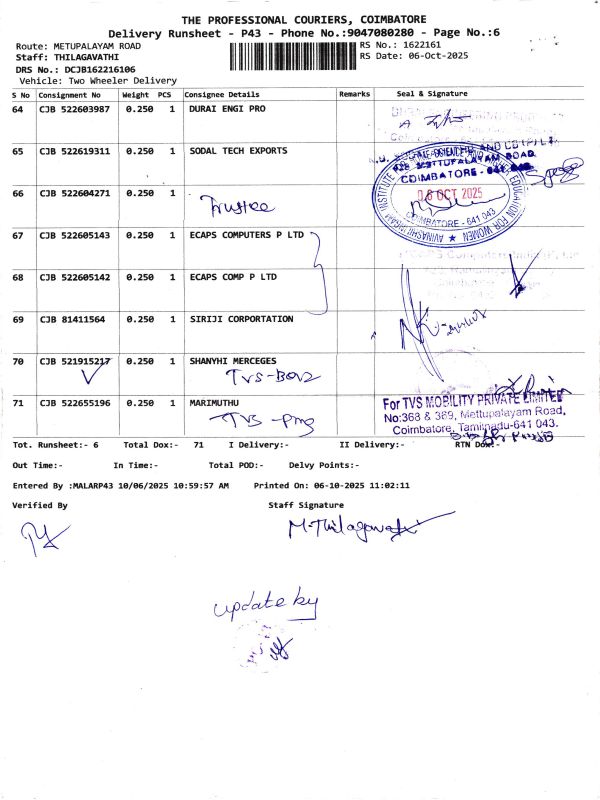 THE PROFESSIONAL COURIERS, COIMBATORE
Delivery Runsheet - P43 - Phone No.:9047080280 - Page No.:6
Route: METUPALAYAM ROAD RS No.: 1622161
Staff: THILAGAVATHI RS Date: 06-Oct-2025
DRS No.: DCJB162216106
Vehicle: Two Wheeler Delivery
S No Consignment No Weight PCS Consignee Details Remarks Seal & Signature
64 CJB 522603987 0.250 1 DURAI ENGI PRO
65 CJB 522619311 0.250 1 SODAL TECH EXPORTS
METTUPALAYAM ROAD
COIMBATORE - 641
66 CJB 522604271 0.250 1
Trustee
06 OCT 2025
COIMBATORE - 641 043
AVINASHILINGAM INSTITUTE EDUCATION FOR WOMEN
67 CJB 522605143 0.250 1 ECAPS COMPUTERS P LTD
68 CJB 522605142 0.250 1 ECAPS COMP P LTD
69 CJB 81411564 0.250 1 SIRIJI CORPORTATION
70 CJB 521915217 0.250 1 SHANYHI MERCEGES
71 CJB 522655196 0.250 1 MARIMUTHU
For TVS MOBILITY PRIVATE LIMITED
No:368 & 369, Mettupalayam Road,
Coimbatore, Tamilnadu-641 043.
Tot. Runsheet:- 6 Total Dox:- 71 I Delivery:- II Delivery:- RTN Dox:-
Out Time:- In Time:- Total POD:- Delvy Points:-
Entered By :MALARP43 10/06/2025 10:59:57 AM Printed On: 06-10-2025 11:02:11
Verified By Staff Signature
M.Thilagavathi
update by